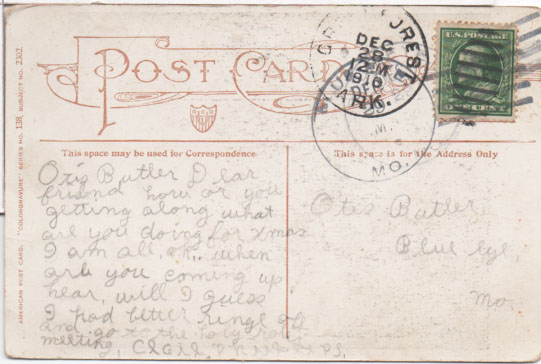 POST CARD
This space may be used for Correspondence
This space is for the Address Only
AMERICAN POST CARD. "COLORGRAVURE" SERIES NO. 138, SUBJECT NO. 2302
U.S. POSTAGE
ONE CENT
DEC
28
12 M
ARK.
MO.
Otis Butler Dear
friend how or you
getting along what
are you doing for xmas
I am all, ok, when
are you coming up
hear, will I guess
I had better ringe off
and go to the
meeting,
Otis Butler
Blue eye,
Mo.